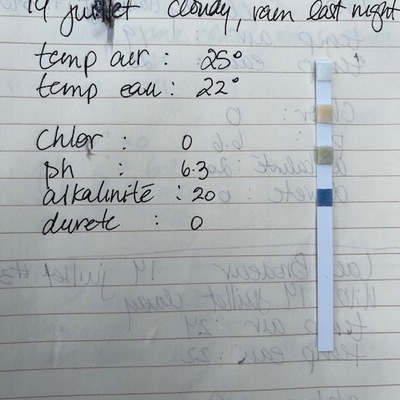 14 juillet cloudy, rain last night
temp air : 25°
temp eau : 22°
Chlor : 0
ph : 6.3
alkalinité : 20
dureté : 0